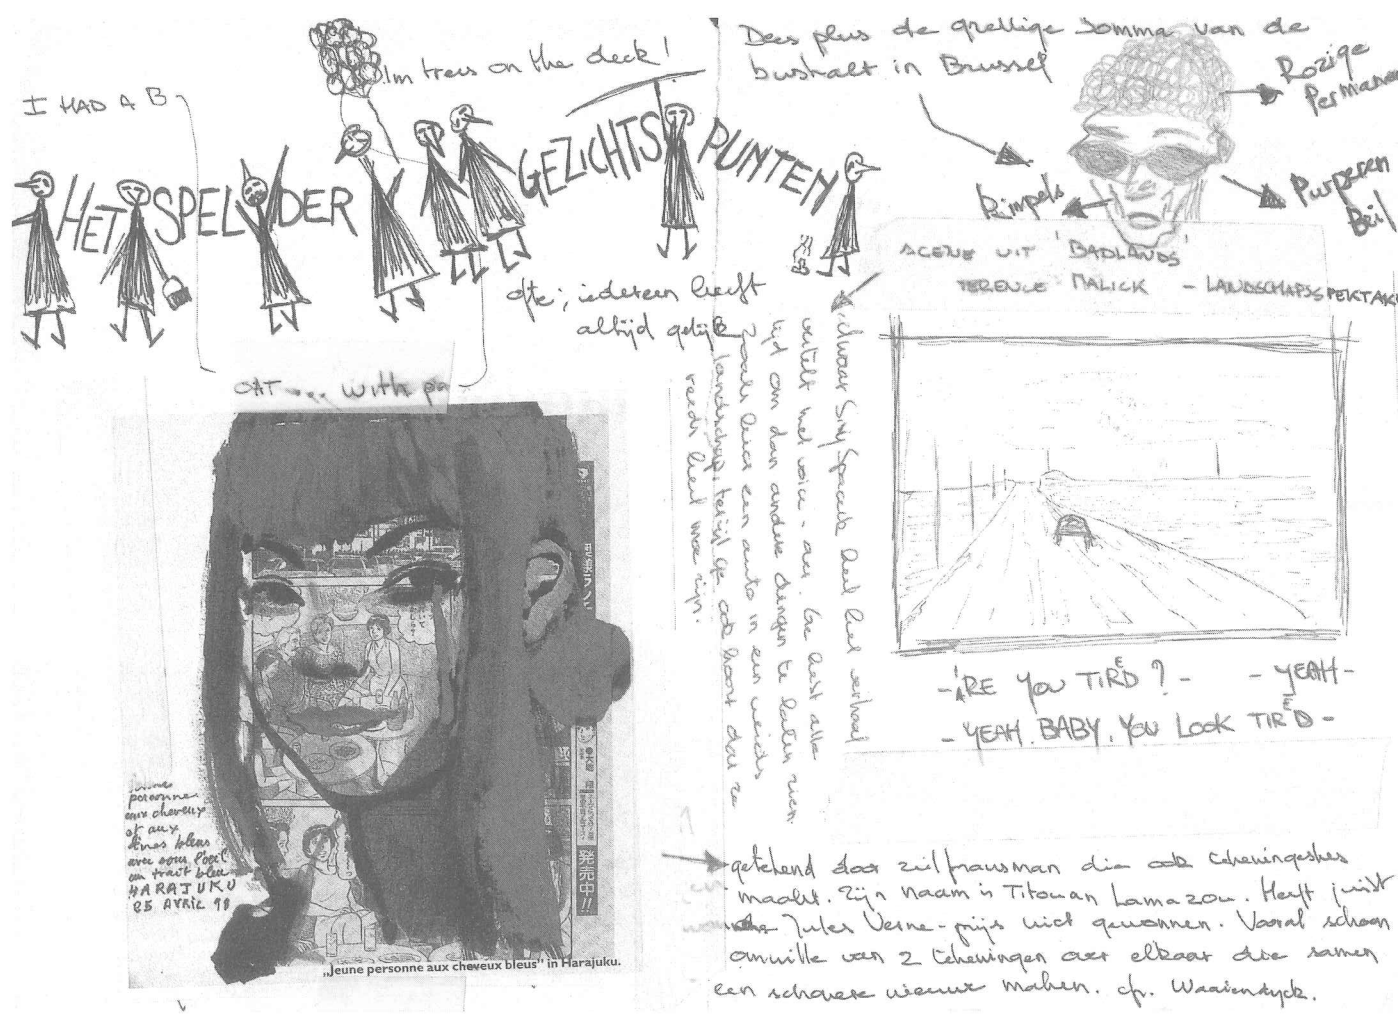 I HAD A B
Im trees on the deck!
HET SPEL DER GEZICHTS PUNTEN
ofte; iedereen heeft
altijd gelijk
OAT .... with pa
Dees plus de grellige Jomma van de
bushalt in Brussel
Rozige
Permanen
Rimpels
Purperen
Beil
SCENE UIT 'BADLANDS'
TERENCE MALICK - LANDSCHAPSSPEKTAK
alwaar Sisy Spacek heel het verhaal
vertelt met voice-over. Ge hest alle
tijd om dan andere dingen te laten zien.
zoals hier een auto in een weids
landschap, terwijl ge ook hoort dat ze
reeds heel moe zijn.
-ARE YOU TIRED? - - YEAH-
- YEAH. BABY. YOU LOOK TIRED -
jeune
personne
aux cheveux
et aux
lèvres bleus
avec sous l'oeil
un trait bleu
HARAJUKU
25 AVRIL 98
発売中!!
„Jeune personne aux cheveux bleus" in Harajuku.
getekend door zeilfransman die ook tekeningeskes
maakt. Zijn naam is Titouan Lamazou. Heeft juist
Jules Verne-prijs niet gewonnen. Vooral schoon
omwille van 2 tekeningen over elkaar die samen
een schonere nieuwe maken. cfr. Waaiendyck.